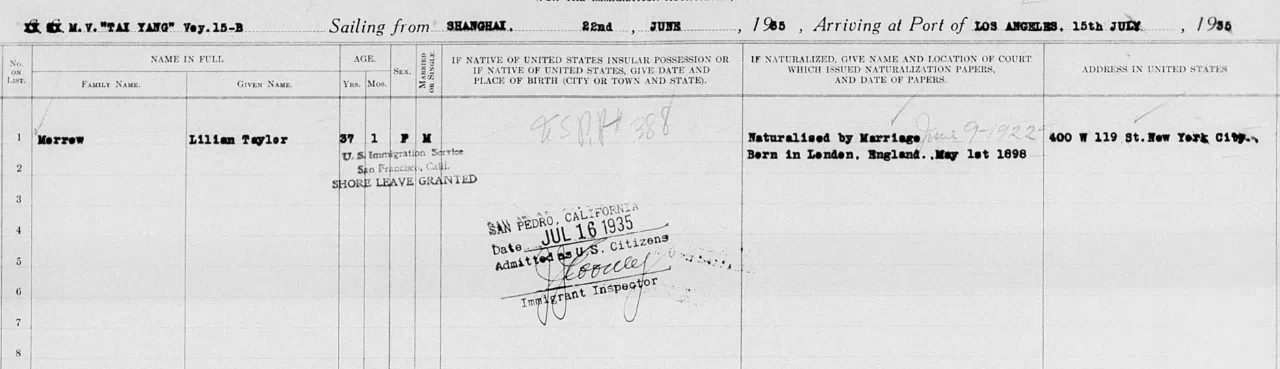 M.V."TAI YANG" Voy.15-B Sailing from SHANGHAI. 22nd , JUNE , 1935 , Arriving at Port of LOS ANGELES. 15th JULY , 1935
No. ON LIST.
NAME IN FULL
FAMILY NAME.
GIVEN NAME.
AGE.
YRS. MOS.
SEX.
MARRIED OR SINGLE
IF NATIVE OF UNITED STATES INSULAR POSSESSION OR
IF NATIVE OF UNITED STATES, GIVE DATE AND
PLACE OF BIRTH (CITY OR TOWN AND STATE).
IF NATURALIZED, GIVE NAME AND LOCATION OF COURT
WHICH ISSUED NATURALIZATION PAPERS,
AND DATE OF PAPERS.
ADDRESS IN UNITED STATES
1 Morrow Lilian Taylor 37 1 F M
388
Naturalised by Marriage June 9-1922
Born in London, England..May 1st 1898
400 W 119 St.New York City.
U. S. Immigration Service
San Francisco, Calif.
SHORE LEAVE GRANTED
2
3
4
5
6
7
8
SAN PEDRO, CALIFORNIA
Date JUL 16 1935
Admitted as U.S. Citizens
Immigrant Inspector